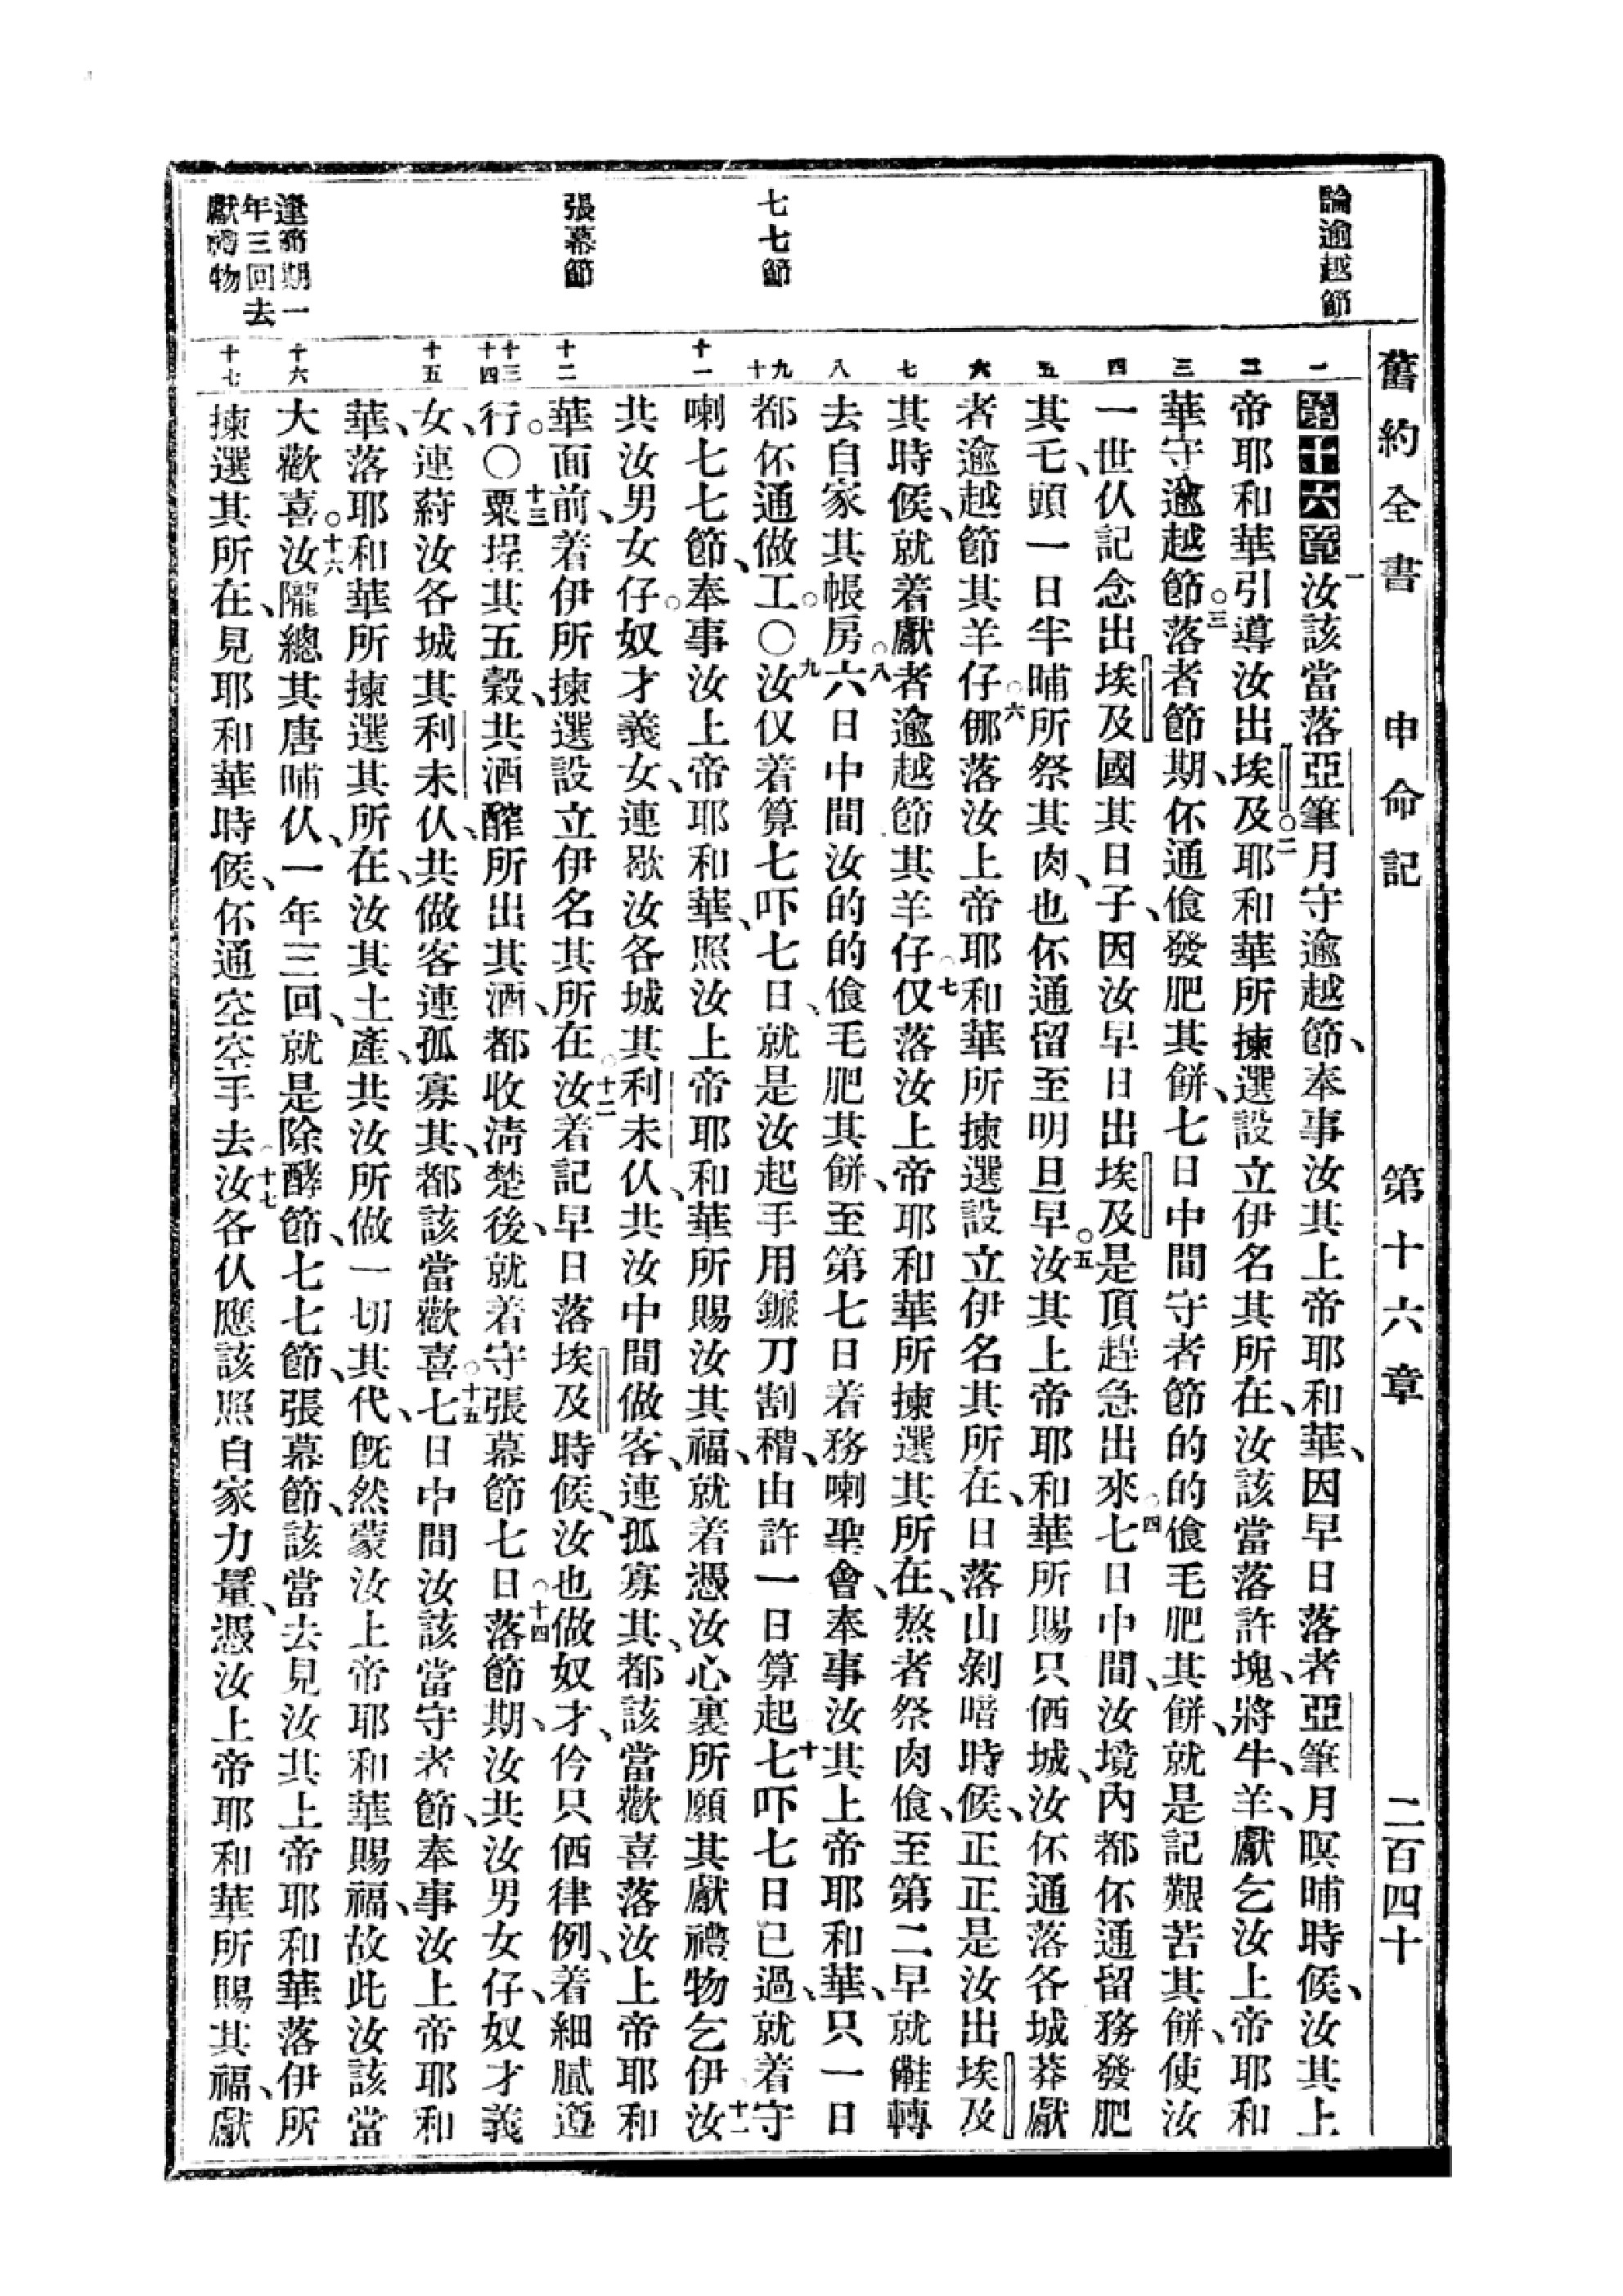 舊約全書 申命記 第十六章 二百四十
論逾越節
七七節
張幕節
逢節期一
年三回去
獻禮物
一 二 三 四 五 六 七 八 九 十 十一 十二 十三 十四 十五 十六 十七
第十六章一汝該當落亞筆月守逾越節、奉事汝其上帝耶和華、因早日落者亞筆月暝晡時候、汝其上
帝耶和華引導汝出埃及。二耶和華所揀選設立伊名其所在、汝該當落許塊、將牛、羊、獻乞汝上帝耶和
華守逾越節。三落者節期、伓通飡發肥其餅、七日中間守者節的的飡毛肥其餅、就是記艱苦其餅、使汝
一世仈記念出埃及國其日子、因汝早日出埃及是頂趕急出來。四七日中間、汝境內都伓通留務發肥
其乇、頭一日半晡所祭其肉、也伓通留至明旦早。五汝其上帝耶和華所賜只價城、汝伓通落各城莽獻
者逾越節其羊仔。六㑚落汝上帝耶和華所揀選設立伊名其所在、日落山剝暗時候、正正是汝出埃及
其時候、就着獻者逾越節其羊仔。七仅落汝上帝耶和華所揀選其所在、熬者祭肉飡、至第二早就𠆧轉
去自家其帳房。八六日中間汝的的飡毛肥其餅、至第七日着務喇聖會、奉事汝其上帝耶和華、只一日
都伓通做工。〇九汝仅着算七吓七日、就是汝起手用鐮刀割𥟠、由許一日算起七吓七日已過、十就着守
喇七七節、奉事汝上帝耶和華、照汝上帝耶和華所賜汝其福、就着憑汝心裏所願其獻禮物乞伊。十一汝
共汝男女仔。奴才義女、連歇汝各城其利未仈、共汝中間做客、連孤寡其、都該當歡喜落汝上帝耶和
華面前、着伊所揀選設立伊名其所在。十二汝着記早日落埃及時候、汝也做奴才、仱只価律例、着細膩遵
行。〇十三粟埕其五穀、共酒醡所出其酒、都收淸楚後、就着守張幕節七日。十四落節期、汝共汝男女仔、奴才義
女、連𦵏汝各城其利未仈、共做客連孤寡其、都該當歡喜。十五七日中間汝該當守者節、奉事汝上帝耶和
華、落耶和華所揀選其所在、汝其土產、共汝所做一切其代、旣然蒙汝上帝耶和華賜福、故此汝該當
大歡喜。十六汝隴總其唐晡仈、一年三回、就是除酵節、七七節、張幕節、該當去見汝其上帝耶和華落伊所
揀選其所在、見耶和華時候、伓通空空手去。十七汝各仈應該照自家力量、憑汝上帝耶和華所賜其福、獻